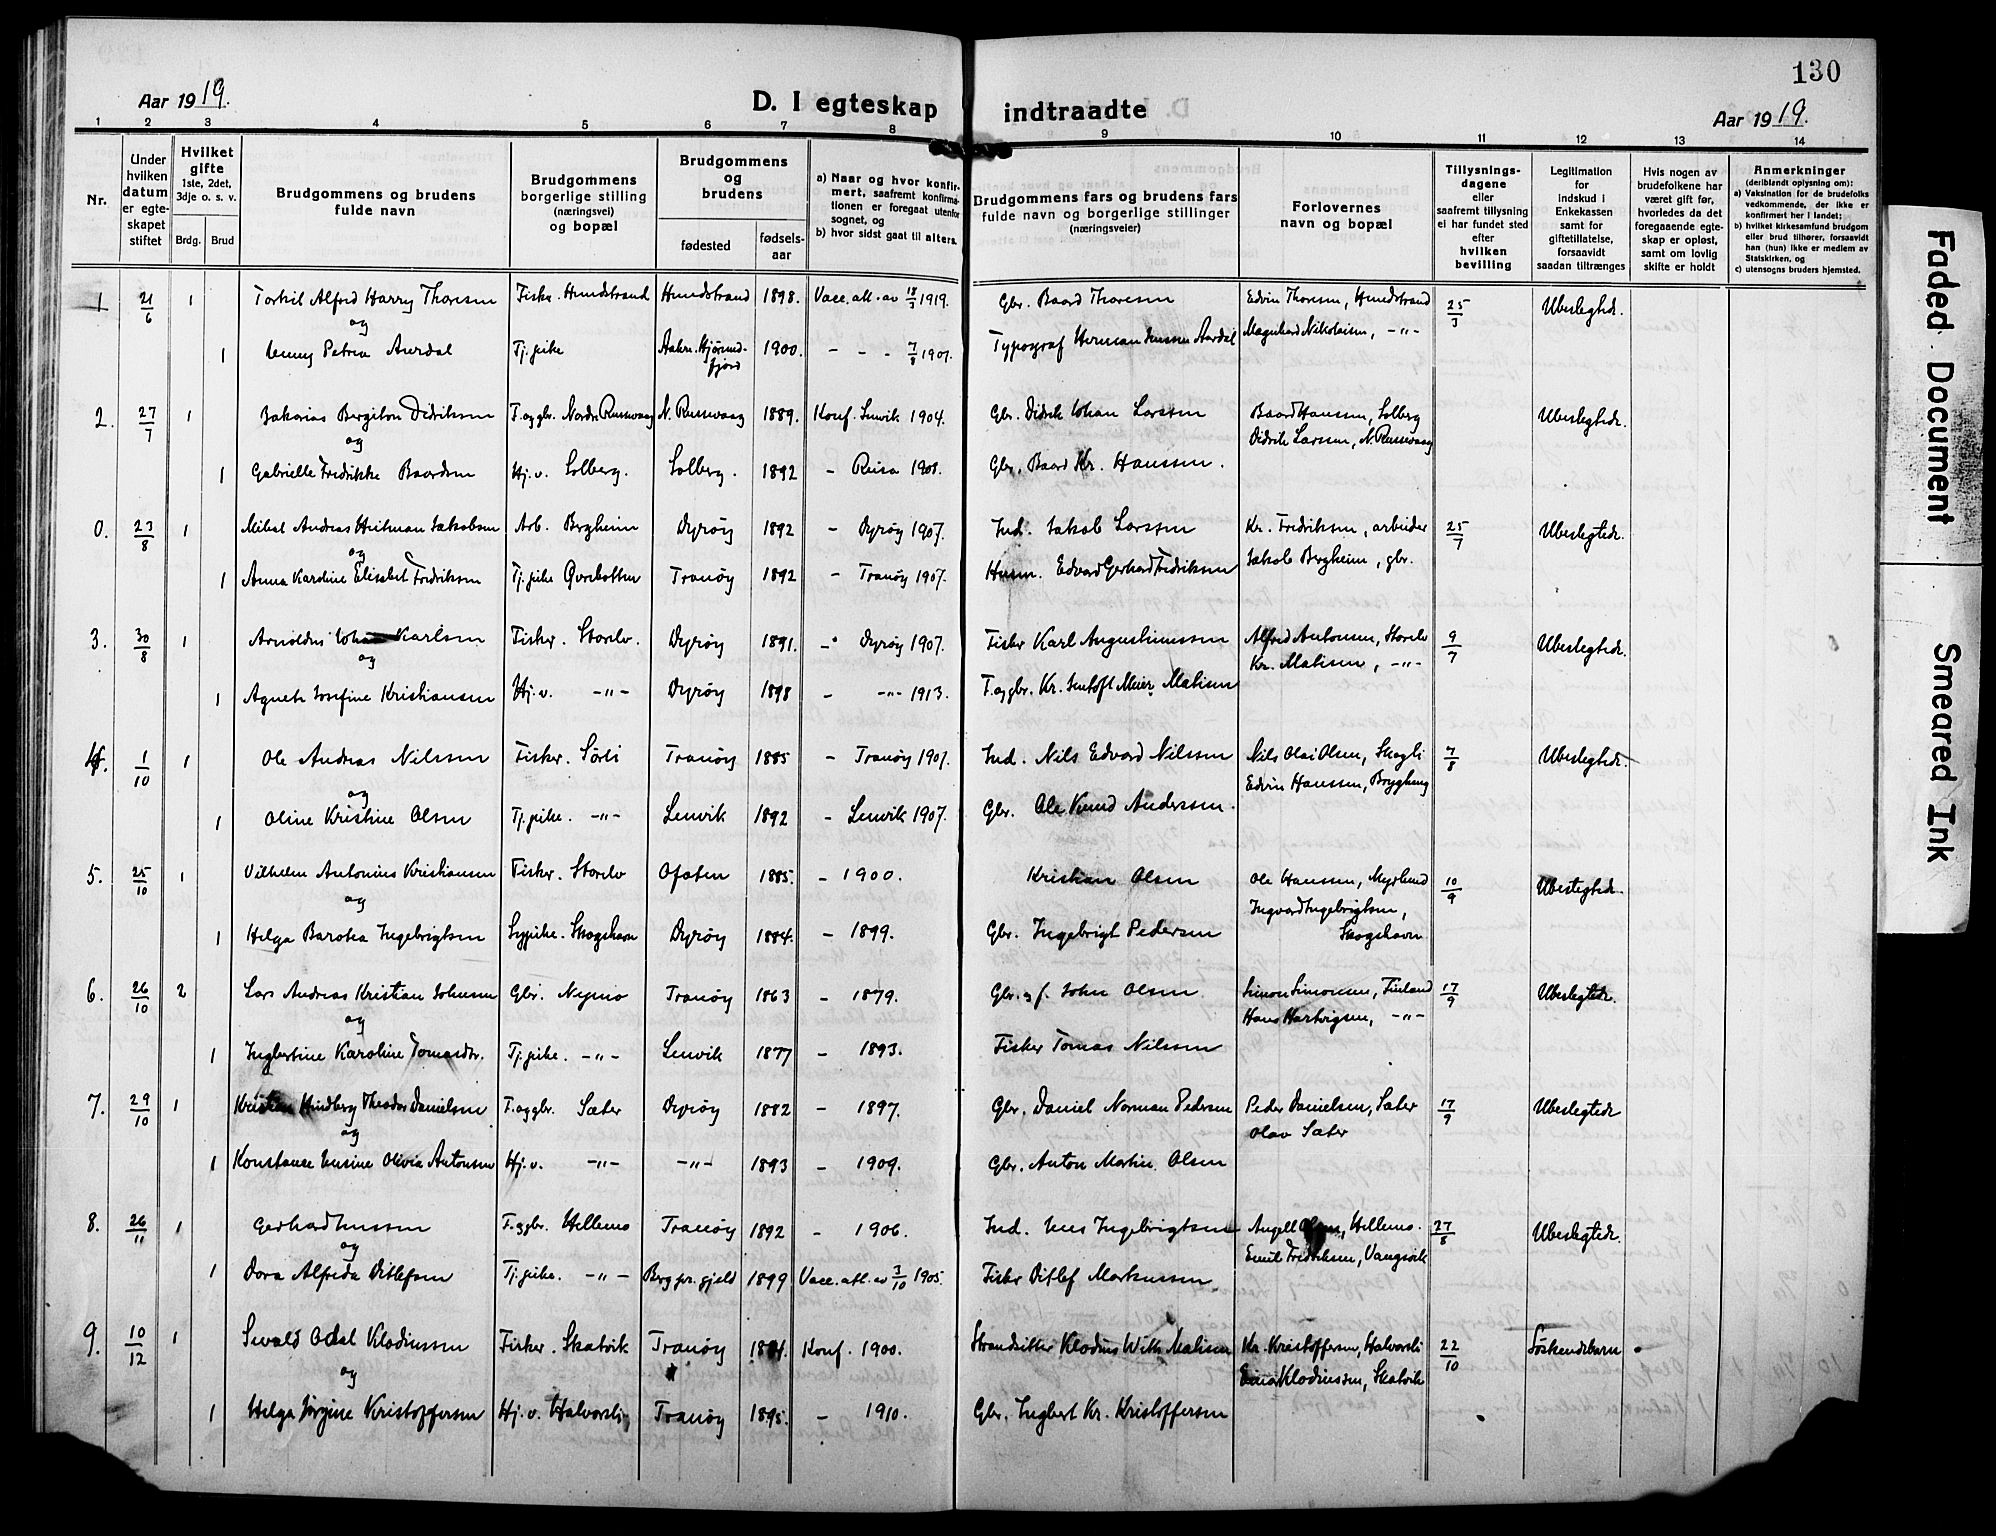 130
Aar 1919.
D. I egteskap indtraadte
Aar 1919.
1 2 3 4 5 6 7 8 9 10 11 12 13 14
Nr.
Under hvilken datum er egteskapet stiftet
Hvilket gifte 1ste, 2det, 3dje o. s. v.
Brdg. Brud
Brudgommens og brudens fulde navn
Brudgommens borgerlige stilling (næringsvei) og bopæl
Brudgommens og brudens
fødested fødselsaar
a) Naar og hvor konfirmert, saafremt konfirmationen er foregaat utenfor sognet, og
b) hvor sidst gaat til alters.
Brudgommens fars og brudens fars fulde navn og borgerlige stillinger (næringsveier)
Forlovernes navn og bopæl
Tillysningsdagene eller saafremt tillysning ei har fundet sted efter hvilken bevilling
Legitimation for indskud i Enkekassen samt for giftetillatelse, forsaavidt saadan tiltrænges
Hvis nogen av brudefolkene har været gift før, hvorledes da det foregaaende egteskap er opløst, samt om lovlig skifte er holdt
Anmerkninger (deriblandt oplysning om):
a) Vaksination for de brudefolks vedkommende, der ikke er konfirmert her i landet;
b) hvilket kirkesamfund brudgom eller brud tilhører, forsaavidt han (hun) ikke er medlem av Statskirken, og
c) utensogns bruders hjemsted.
1 21/6 1 Torkil Alfred Harry Thoresen Fisker. Hundstrand Hundstrand 1898. Vacc. att. av 18/3 1919. Gbr. Baard Thoresen Edvin Thoresen, Hundstrand 25/3 Ubeslegtede.
og Magnhard Nikolaisen, -"-
1 Jenny Petrea Aurdal Tj. pike 1900. - - - 7/8 1901. Typograf Herman Jenssen Aardal
2. 27/7 1 Zakarias Bergiton Didriksen F. og gbr. Nordre Russevaag N. Russevaag 1889. Konf. Lenvik 1904. Gbr. Didrik Johan Larssen Baard Hanssen, Solberg Ubeslegtede.
og Didrik Larssen, N. Russevaag
1 Gabrielle Fredrikke Baardsen Hj. v. Solberg. Solberg. 1892 - Reisa 1908. Gbr. Baard Kr. Hanssen.
0. 23/8 1 Mikal Andreas Heitman Jakobsen Arb. Bergheim Dyrøy 1892 - Dyrøy 1907. Ind. Jakob Larssen Kr. Fredriksen, arbeider 25/7 Ubeslegtede.
og Jakob Bergheim, gbr.
1 Anna Karoline Elisabet Fredriksen Tj. pike Tranøy 1892 - Tranøy 1907. Husm. Edvard Gerhard Fredriksen
3. 30/8 1 Arnoldus Johan Karlsen Fisker. Storelv. Dyrøy 1891. - Dyrøy 1907. Fisker Karl Augustinussen Alfred Antonsen, Storelv 9/7 Ubeslegtede.
og Kr. Matisen, -"-
1 Agnete Josefine Kristiansen Hj. v. -"- Dyrøy 1898 - -"- 1913. F. og gbr. Kr. Jentoft Meier Matisen
4. 1/10 1 Ole Andreas Nilssen Fisker. Sørli Tranøy 1885 - Tranøy 1901. Ind. Nils Edvard Nilssen Nils Olai Olsen, Skogli 7/8 Ubeslegtede.
og Edvin Hanssen, Brygghaug
1 Oline Kristine Olsen Tj. pike. -"- Lenvik 1892 - Lenvik 1907. Gbr. Ole Knud Anderssen.
5. 25/10 1 Vilhelm Antonius Kristiansen Fisker. Storelv Ofoten 1885. - 1900. Kristian Olsen Ole Hanssen, Myrlund 10/9 Ubeslegtede.
og Ingvard Ingebrigtsen, Skogshavn
1 Helga Barotea Ingebrigtsen Sypike. Skogshavn Dyrøy 1884. - 1899. Gbr. Ingebrigt Pedersen
6. 26/10 2 Lars Andreas Kristian Johnsen Gbr. Nymo Tranøy 1863 - 1879. Gbr. og f. John Olsen Simon Simonsen, Finland 17/9 Ubeslegtede.
og Hans Hartvigsen, -"-
1 Ingbertine Karoline Tomasdtr. Tj. pike. -"- Lenvik 1877 - 1893. Fisker Tomas Nilssen
7. 29/10 1 Kristian Hindberg Theodor Danielsen F. og gbr. Sæter Dyrøy 1882 - 1897. Gbr. Daniel Norman Pedersen Peder Danielsen, Sæter 17/9 Ubeslegtede
og Olav Sæter
1 Konstanse Jensine Olivia Antonsen Hj. v. -"- -"- 1893 - 1909. Gbr. Anton Martin Olsen
8. 26/11 1 Gerhard Jenssen F. og gbr. Hellemo Tranøy 1892 - 1906. Ind. Jens Ingebrigtsen Angell Olsen, Hellemo. 27/8 Ubeslegtede.
og Emil Fredriksen, Vangsvik
1 Dora Alfrida Ditlefsen Tj. pike. -"- Berg pr. gjeld 1899 Vacc. att. av 3/10 1905. Fisker Ditlef Markussen
9. 10/12 1 Sevald Odal Klodiussen Fisker. Skatvik Tranøy Konf. 1900. Strandsitter Klodius Matisen Kr. Kristoffersen, Halvorsli 22/10 Søskendebarn
og Einar Klodiussen, Skatvik
1 Helga Jørgine Kristoffersen Hj. v. Halvorsli Tranøy 1895. - 1910. Gbr. Ingbert Kr. Kristoffersen
Faded Document
Smeared Ink